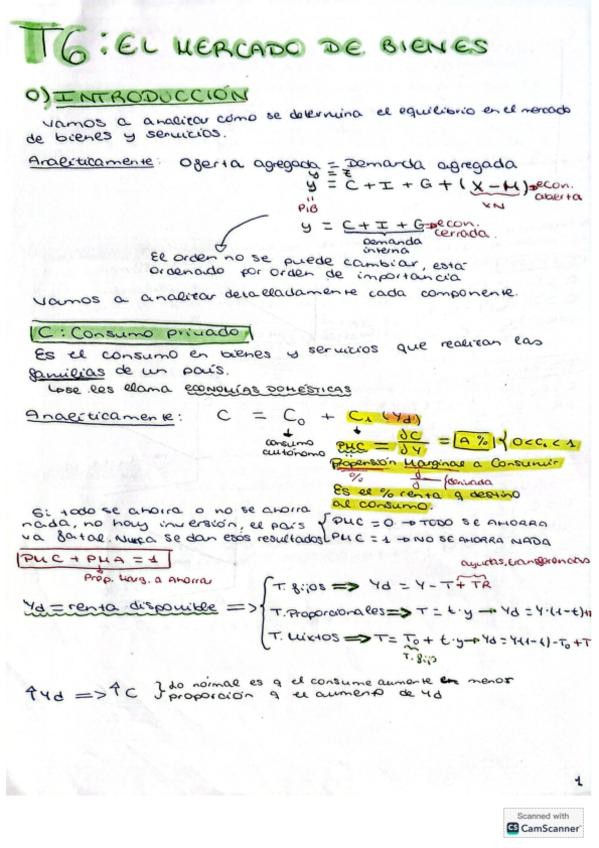 T6: EL MERCADO DE BIENES
0) INTRODUCCIÓN
Vamos a analizar cómo se determina el equilibrio en el mercado
de bienes y servicios.
Analíticamente: Oferta agregada = Demanda agregada
y = Z
y = C + I + G + (X - M) → econ. abierta
PIB
XN
y = C + I + G → econ. cerrada.
Demanda interna
El orden no se puede cambiar, está
ordenado por orden de importancia
Vamos a analizar detalladamente cada componente.
C: Consumo privado
Es el consumo en bienes y servicios que realizan las
familias de un país.
↳ se les llama ECONOMÍAS DOMÉSTICAS
Analíticamente: C = C₀ + C₁ (Yd)
consumo autónomo
PMC = ∂C/∂Y = A % | { 0<C₁<1
Propensión Marginal a Consumir
%
∂/∂ {derivada
Es el % renta q destino
al consumo.
Si todo se ahorra o no se ahorra
nada, no hay inversión, el país
va fatal. Nunca se dan esos resultados
{ PMC = 0 → TODO SE AHORRA
PMC = 1 → NO SE AHORRA NADA
PMC + PMA = 1
Prop. Marg. a Ahorra
ayudas, transferencias
Yd = renta disponible ⇒
T. fijos ⇒ Yd = Y - T + TR
T. Proporcionales ⇒ T = t·y → Yd = Y·(1-t)+
T. Mixtos ⇒ T = T₀ + t·y → Yd = Y(1-t)-T₀+T
T. fijo
↑Yd ⇒ ↑C } Lo normal es q el consumo aumente en menor
proporción q el aumento de Yd
1
Scanned with
CS CamScanner